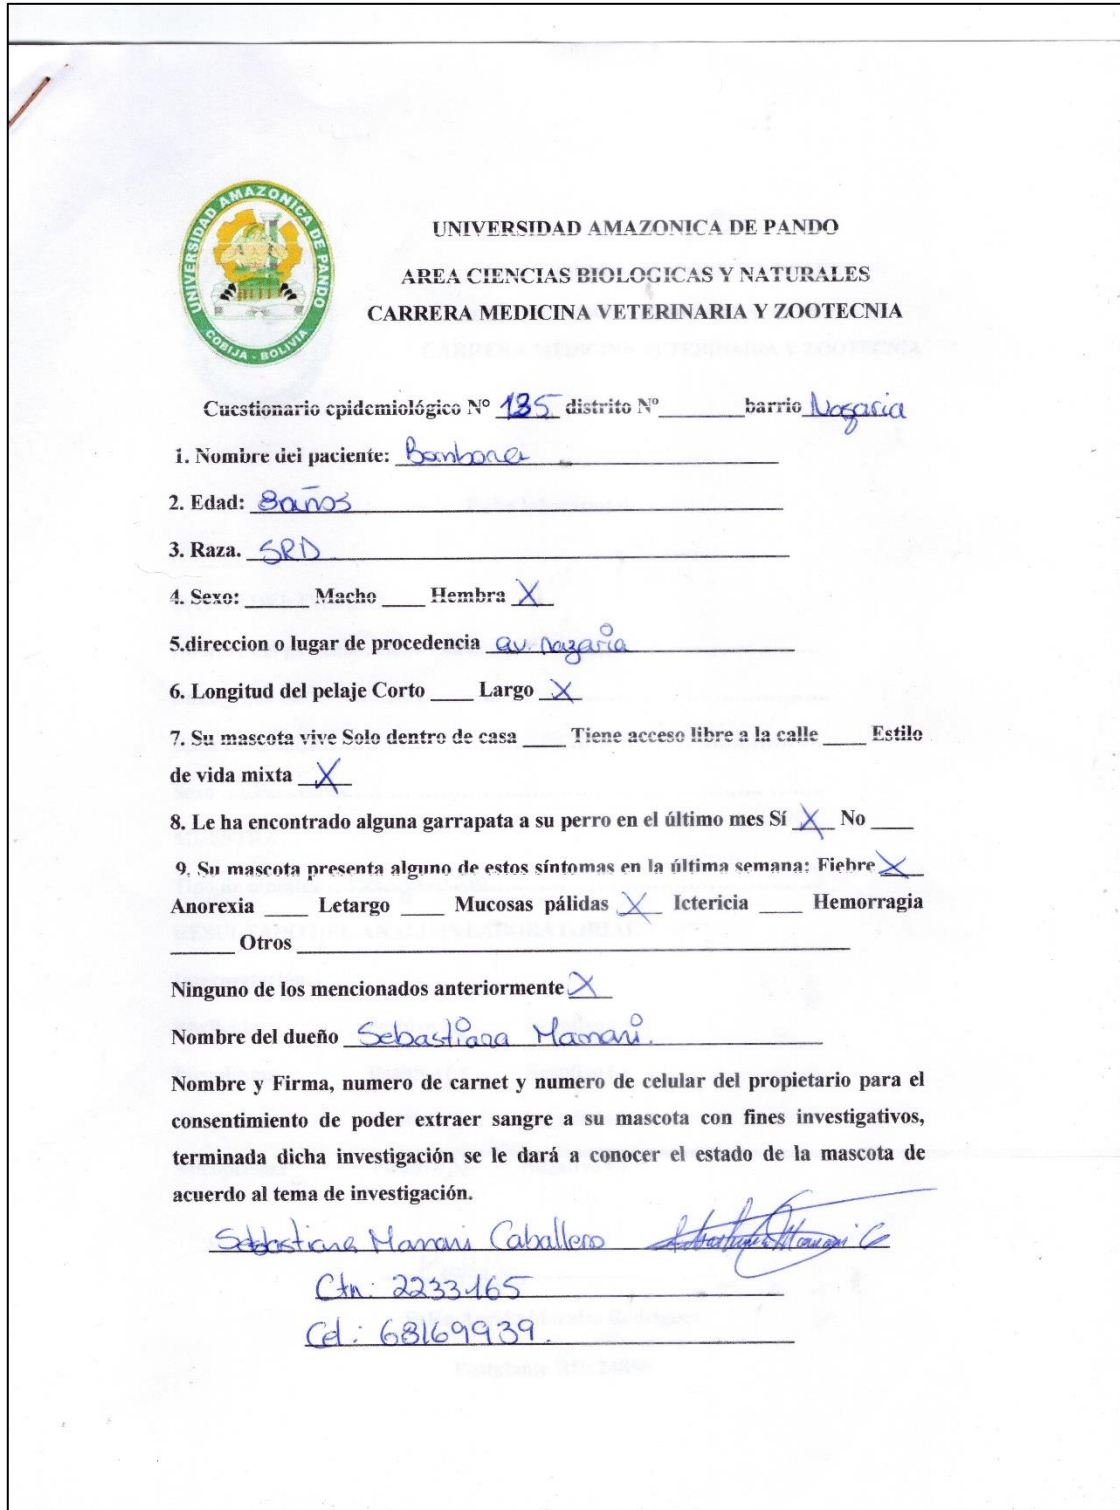 UNIVERSIDAD AMAZONICA DE PANDO
COBIJA - BOLIVIA
UNIVERSIDAD AMAZONICA DE PANDO
AREA CIENCIAS BIOLOGICAS Y NATURALES
CARRERA MEDICINA VETERINARIA Y ZOOTECNIA
Cuestionario epidemiológico N° 135 distrito N°________ barrio Nazaria
1. Nombre del paciente: Bombona
2. Edad: 8 años
3. Raza. SRD
4. Sexo: ______ Macho ____ Hembra X
5.direccion o lugar de procedencia av. nazaria
6. Longitud del pelaje Corto ____ Largo X
7. Su mascota vive Solo dentro de casa ____ Tiene acceso libre a la calle ____ Estilo
de vida mixta X
8. Le ha encontrado alguna garrapata a su perro en el último mes Sí X No ____
9. Su mascota presenta alguno de estos síntomas en la última semana: Fiebre X
Anorexia ____ Letargo ____ Mucosas pálidas X Ictericia ____ Hemorragia
______ Otros ______
Ninguno de los mencionados anteriormente X
Nombre del dueño Sebastiana Mamani.
Nombre y Firma, numero de carnet y numero de celular del propietario para el
consentimiento de poder extraer sangre a su mascota con fines investigativos,
terminada dicha investigación se le dará a conocer el estado de la mascota de
acuerdo al tema de investigación.
Sebastiana Mamani Caballero
Ctn: 2233165
Cel.: 68169939.